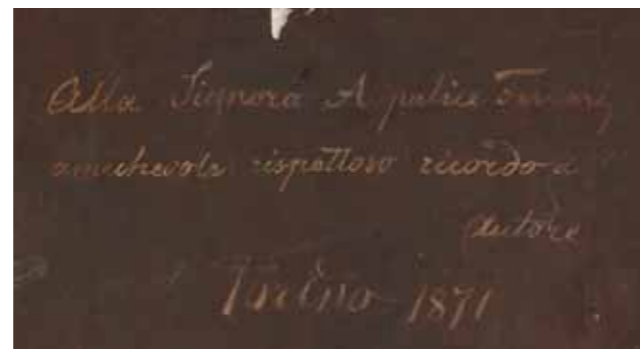 Alla Signora A
amichevole rispettoso ricordo
autore
Torino 1871